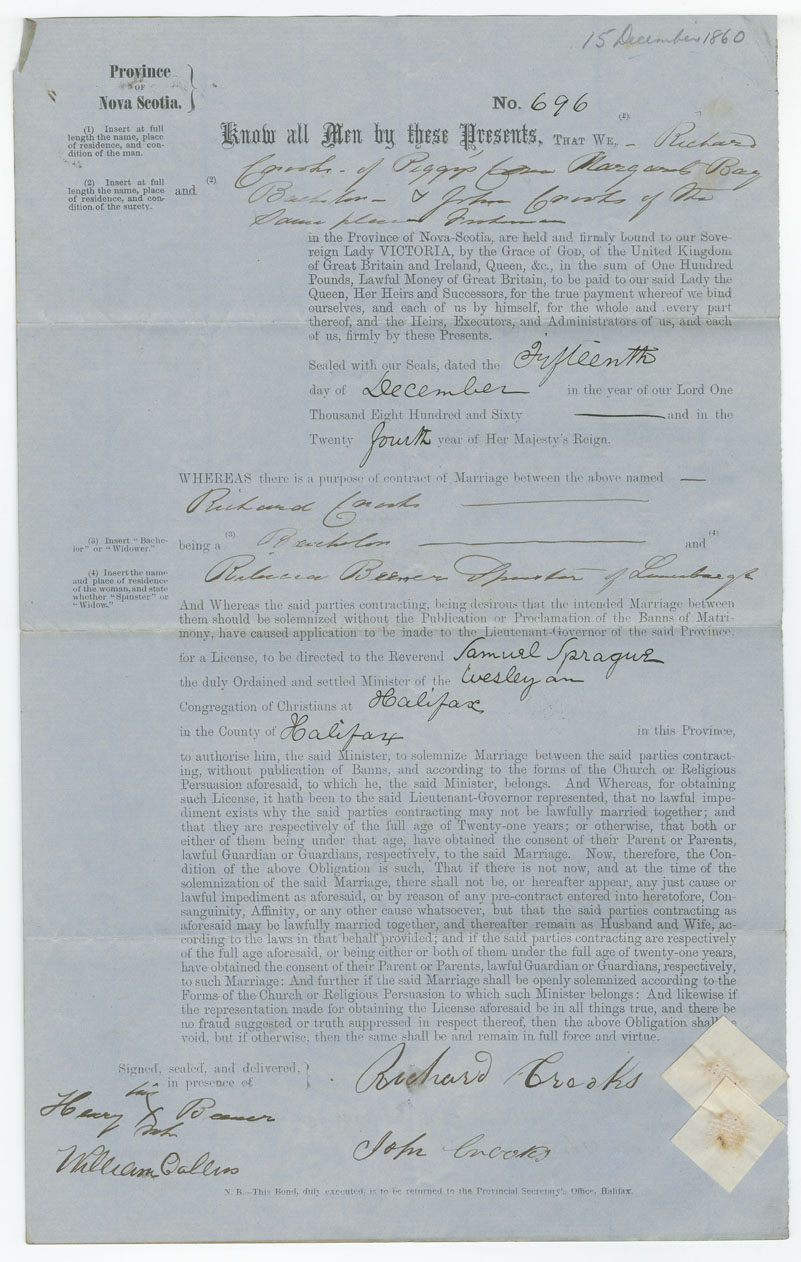 15 December 1860
Province
OF
Nova Scotia.
No. 696
(1) Insert at full
length the name, place
of residence, and con-
dition of the man.
(1)
Know all Men by these Presents, THAT WE, - Richard
Crooks - of Peggys Cove Margarets Bay
(2) Insert at full
length the name, place
of residence, and con-
dition of the surety.
and (2) Bachelor - & John Crooks of the
Same place Fisherman
in the Province of Nova-Scotia, are held and firmly bound to our Sove-
reign Lady VICTORIA, by the Grace of GOD, of the United Kingdom
of Great Britain and Ireland, Queen, &c., in the sum of One Hundred
Pounds, Lawful Money of Great Britain, to be paid to our said Lady the
Queen, Her Heirs and Successors, for the true payment whereof we bind
ourselves, and each of us by himself, for the whole and every part
thereof, and the Heirs, Executors, and Administrators of us, and each
of us, firmly by these Presents.
Sealed with our Seals, dated the Fifteenth
day of December in the year of our Lord One
Thousand Eight Hundred and Sixty —— and in the
Twenty fourth year of Her Majesty's Reign.
WHEREAS there is a purpose of contract of Marriage between the above named —
Richard Crooks ——
(3) Insert "Bache-
lor" or "Widower."
being a (3) Bachelor —— and (4)
(4) Insert the name
and place of residence
of the woman, and state
whether "Spinster" or
"Widow."
Rebecca Beener Spinster of Lunenburgh
And Whereas the said parties contracting, being desirous that the intended Marriage between
them should be solemnized without the Publication or Proclamation of the Banns of Matri-
mony, have caused application to be made to the Lieutenant-Governor of the said Province,
for a License, to be directed to the Reverend Samuel Sprague
the duly Ordained and settled Minister of the Wesleyan
Congregation of Christians at Halifax
in the County of Halifax in this Province,
to authorise him, the said Minister, to solemnize Marriage between the said parties contract-
ing, without publication of Banns, and according to the forms of the Church or Religious
Persuasion aforesaid, to which he, the said Minister, belongs. And Whereas, for obtaining
such License, it hath been to the said Lieutenant-Governor represented, that no lawful impe-
diment exists why the said parties contracting may not be lawfully married together; and
that they are respectively of the full age of Twenty-one years; or otherwise, that both or
either of them being under that age, have obtained the consent of their Parent or Parents,
lawful Guardian or Guardians, respectively, to the said Marriage. Now, therefore, the Con-
dition of the above Obligation is such, That if there is not now, and at the time of the
solemnization of the said Marriage, there shall not be, or hereafter appear, any just cause or
lawful impediment as aforesaid, or by reason of any pre-contract entered into heretofore, Con-
sanguinity, Affinity, or any other cause whatsoever, but that the said parties contracting as
aforesaid may be lawfully married together, and thereafter remain as Husband and Wife, ac-
cording to the laws in that behalf provided; and if the said parties contracting are respectively
of the full age aforesaid, or being either or both of them under the full age of twenty-one years,
have obtained the consent of their Parent or Parents, lawful Guardian or Guardians, respectively,
to such Marriage: And further if the said Marriage shall be openly solemnized according to the
Forms of the Church or Religious Persuasion to which such Minister belongs: And likewise if
the representation made for obtaining the License aforesaid be in all things true, and there be
no fraud suggested or truth suppressed in respect thereof, then the above Obligation shall be
void, but if otherwise, then the same shall be and remain in full force and virtue.
Signed, sealed, and delivered,
in presence of
Richard Crooks
his
Henry X Beener
mk
John Crooks
William Collins
N. B.—This Bond, duly executed, is to be returned to the Provincial Secretary's Office, Halifax.